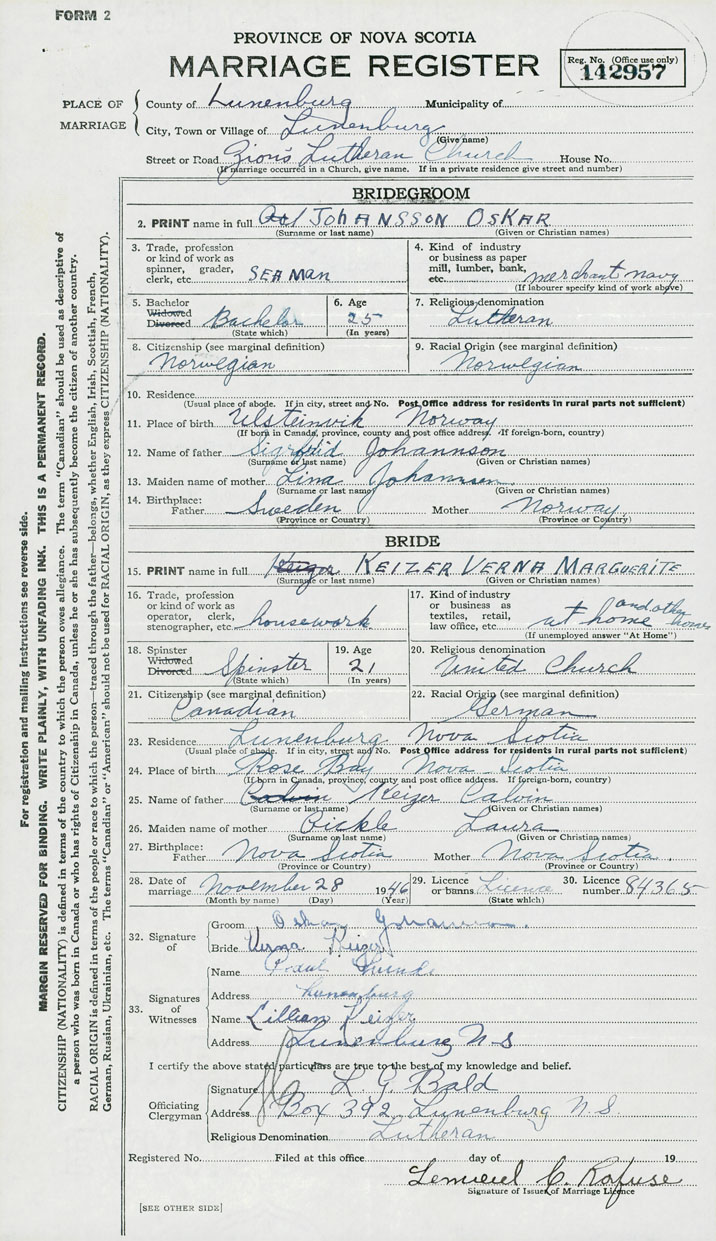 FORM 2
PROVINCE OF NOVA SCOTIA
MARRIAGE REGISTER
Reg. No. (Office use only)
142957
PLACE OF MARRIAGE
County of Lunenburg Municipality of
City, Town or Village of Lunenburg
(Give name)
Street or Road Zion's Lutheran Church House No.
(If marriage occurred in a Church, give name. If in a private residence give street and number)
BRIDEGROOM
2. PRINT name in full JOHANSSON OSKAR
(Surname or last name) (Given or Christian names)
3. Trade, profession or kind of work as spinner, grader, clerk, etc. SEAMAN
4. Kind of industry or business as paper mill, lumber, bank, etc. merchant navy
(If labourer specify kind of work above)
5. Bachelor Widowed Divorced Bachelor
(State which)
6. Age 25
(In years)
7. Religious denomination Lutheran
8. Citizenship (see marginal definition) Norwegian
9. Racial Origin (see marginal definition) Norwegian
10. Residence
(Usual place of abode. If in city, street and No. Post Office address for residents in rural parts not sufficient)
11. Place of birth Ulsteinvik Norway
(If born in Canada, province, county and post office address. If foreign-born, country)
12. Name of father Sigfrid Johannson
(Surname or last name) (Given or Christian names)
13. Maiden name of mother Lina Johannsen
(Surname or last name) (Given or Christian names)
14. Birthplace: Father Sweden Mother Norway
(Province or Country) (Province or Country)
BRIDE
15. PRINT name in full Keizer KEIZER VERNA MARGUERITE
(Surname or last name) (Given or Christian names)
16. Trade, profession or kind of work as operator, clerk, stenographer, etc. housework
17. Kind of industry or business as textiles, retail, law office, etc. at home and other homes
(If unemployed answer "At Home")
18. Spinster Widowed Divorced Spinster
(State which)
19. Age 21
(In years)
20. Religious denomination United Church
21. Citizenship (see marginal definition) Canadian
22. Racial Origin (see marginal definition) German
23. Residence Lunenburg Nova Scotia
(Usual place of abode. If in city, street and No. Post Office address for residents in rural parts not sufficient)
24. Place of birth Rose Bay Nova Scotia
(If born in Canada, province, county and post office address. If foreign-born, country)
25. Name of father Keizer Calvin
(Surname or last name) (Given or Christian names)
26. Maiden name of mother Bickle Laura
(Surname or last name) (Given or Christian names)
27. Birthplace: Father Nova Scotia Mother Nova Scotia.
(Province or Country) (Province or Country)
28. Date of marriage November 28 1946
(Month by name) (Day) (Year)
29. Licence or banns Licence
(State which)
30. Licence number 84365
32. Signature of
Groom Oskar Johansson.
Bride Verna Keizer
33. Signatures of Witnesses
Name Paul
Address Lunenburg
Name Lillian Keizer
Address Lunenburg N.S
I certify the above stated particulars are true to the best of my knowledge and belief.
Officiating Clergyman
Signature L G Bald
Address Box 392 Lunenburg N.S.
Religious Denomination Lutheran
Registered No. Filed at this office day of 19
Lemuel C. Rafuse
Signature of Issuer of Marriage Licence
[SEE OTHER SIDE]
For registration and mailing instructions see reverse side.
MARGIN RESERVED FOR BINDING. WRITE PLAINLY, WITH UNFADING INK. THIS IS A PERMANENT RECORD.
CITIZENSHIP (NATIONALITY) is defined in terms of the country to which the person owes allegiance. The term "Canadian" should be used as descriptive of
a person who was born in Canada or who has rights of Citizenship in Canada, unless he or she has subsequently become the citizen of another country.
RACIAL ORIGIN is defined in terms of the people or race to which the person—traced through the father—belongs, whether English, Irish, Scottish, French,
German, Russian, Ukrainian, etc. The terms "Canadian" or "American" should not be used for RACIAL ORIGIN, as they express CITIZENSHIP (NATIONALITY).